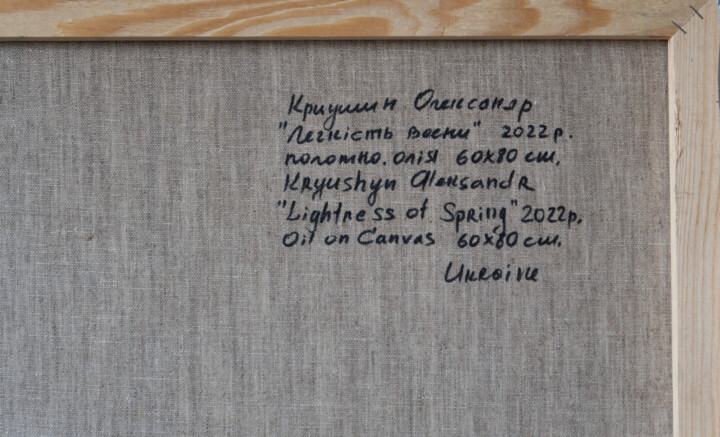 Криушин Олександр
"Легкість весни" 2022р.
полотно. олія 60х80 см.
Kryushyn Aleksandr
"Lightness of Spring" 2022р.
Oil on Canvas 60x80 см.
Ukraine